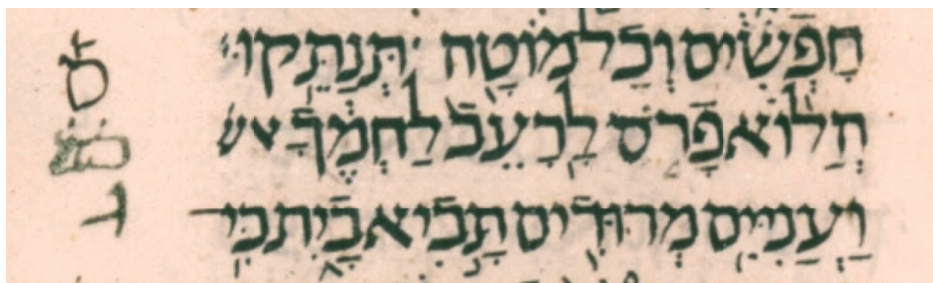 חָפְשִׁים וְכָל מוֹטָה תְּנַתֵּקוּ׃
הֲלוֹא פָרֹס לָרָעֵב לַחְמֶךָ
וַעֲנִיִּים מְרוּדִים תָּבִיא בָיִת כִּי